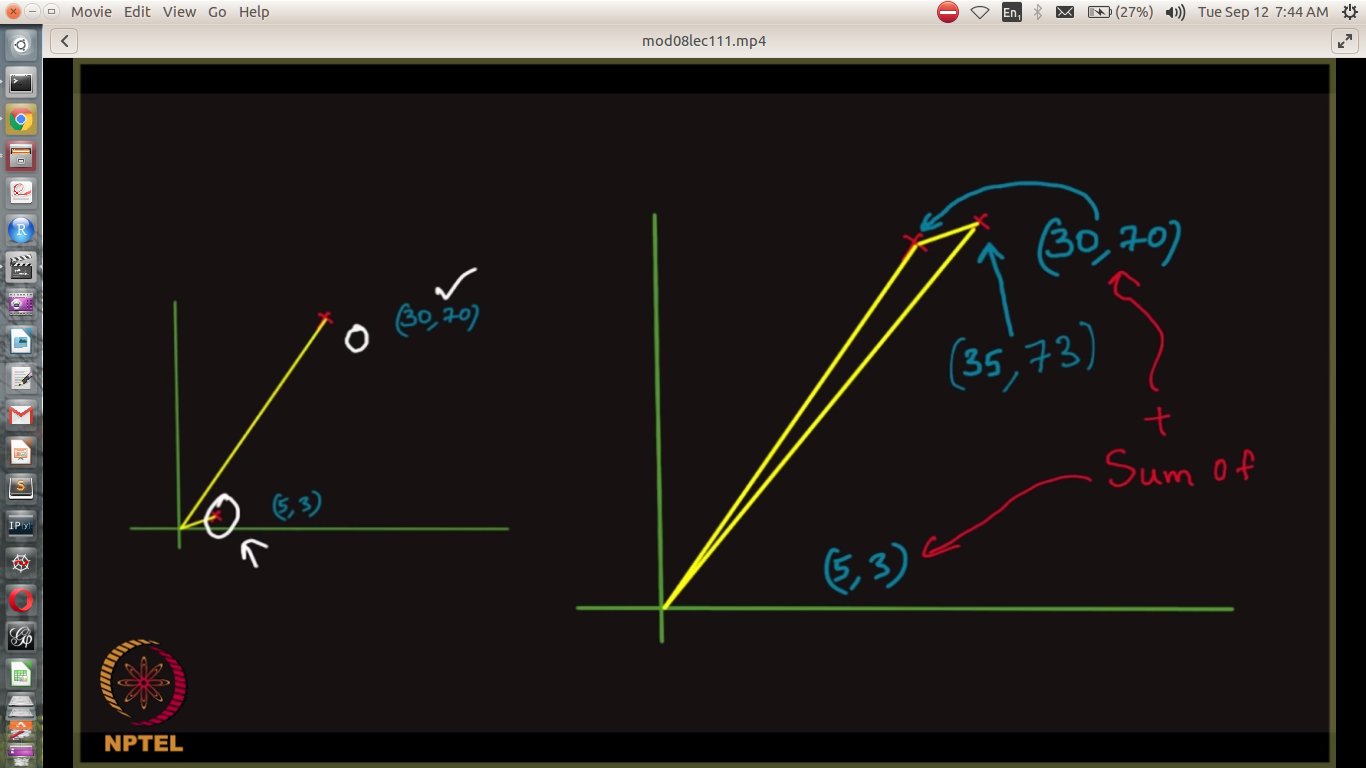 Movie Edit View Go Help
En1
(27%)
Tue Sep 12 7:44 AM
mod08lec111.mp4
(30,70)
(5,3)
(30,70)
(35,73)
+
Sum of
(5,3)
S
IP[y]:
NPTEL